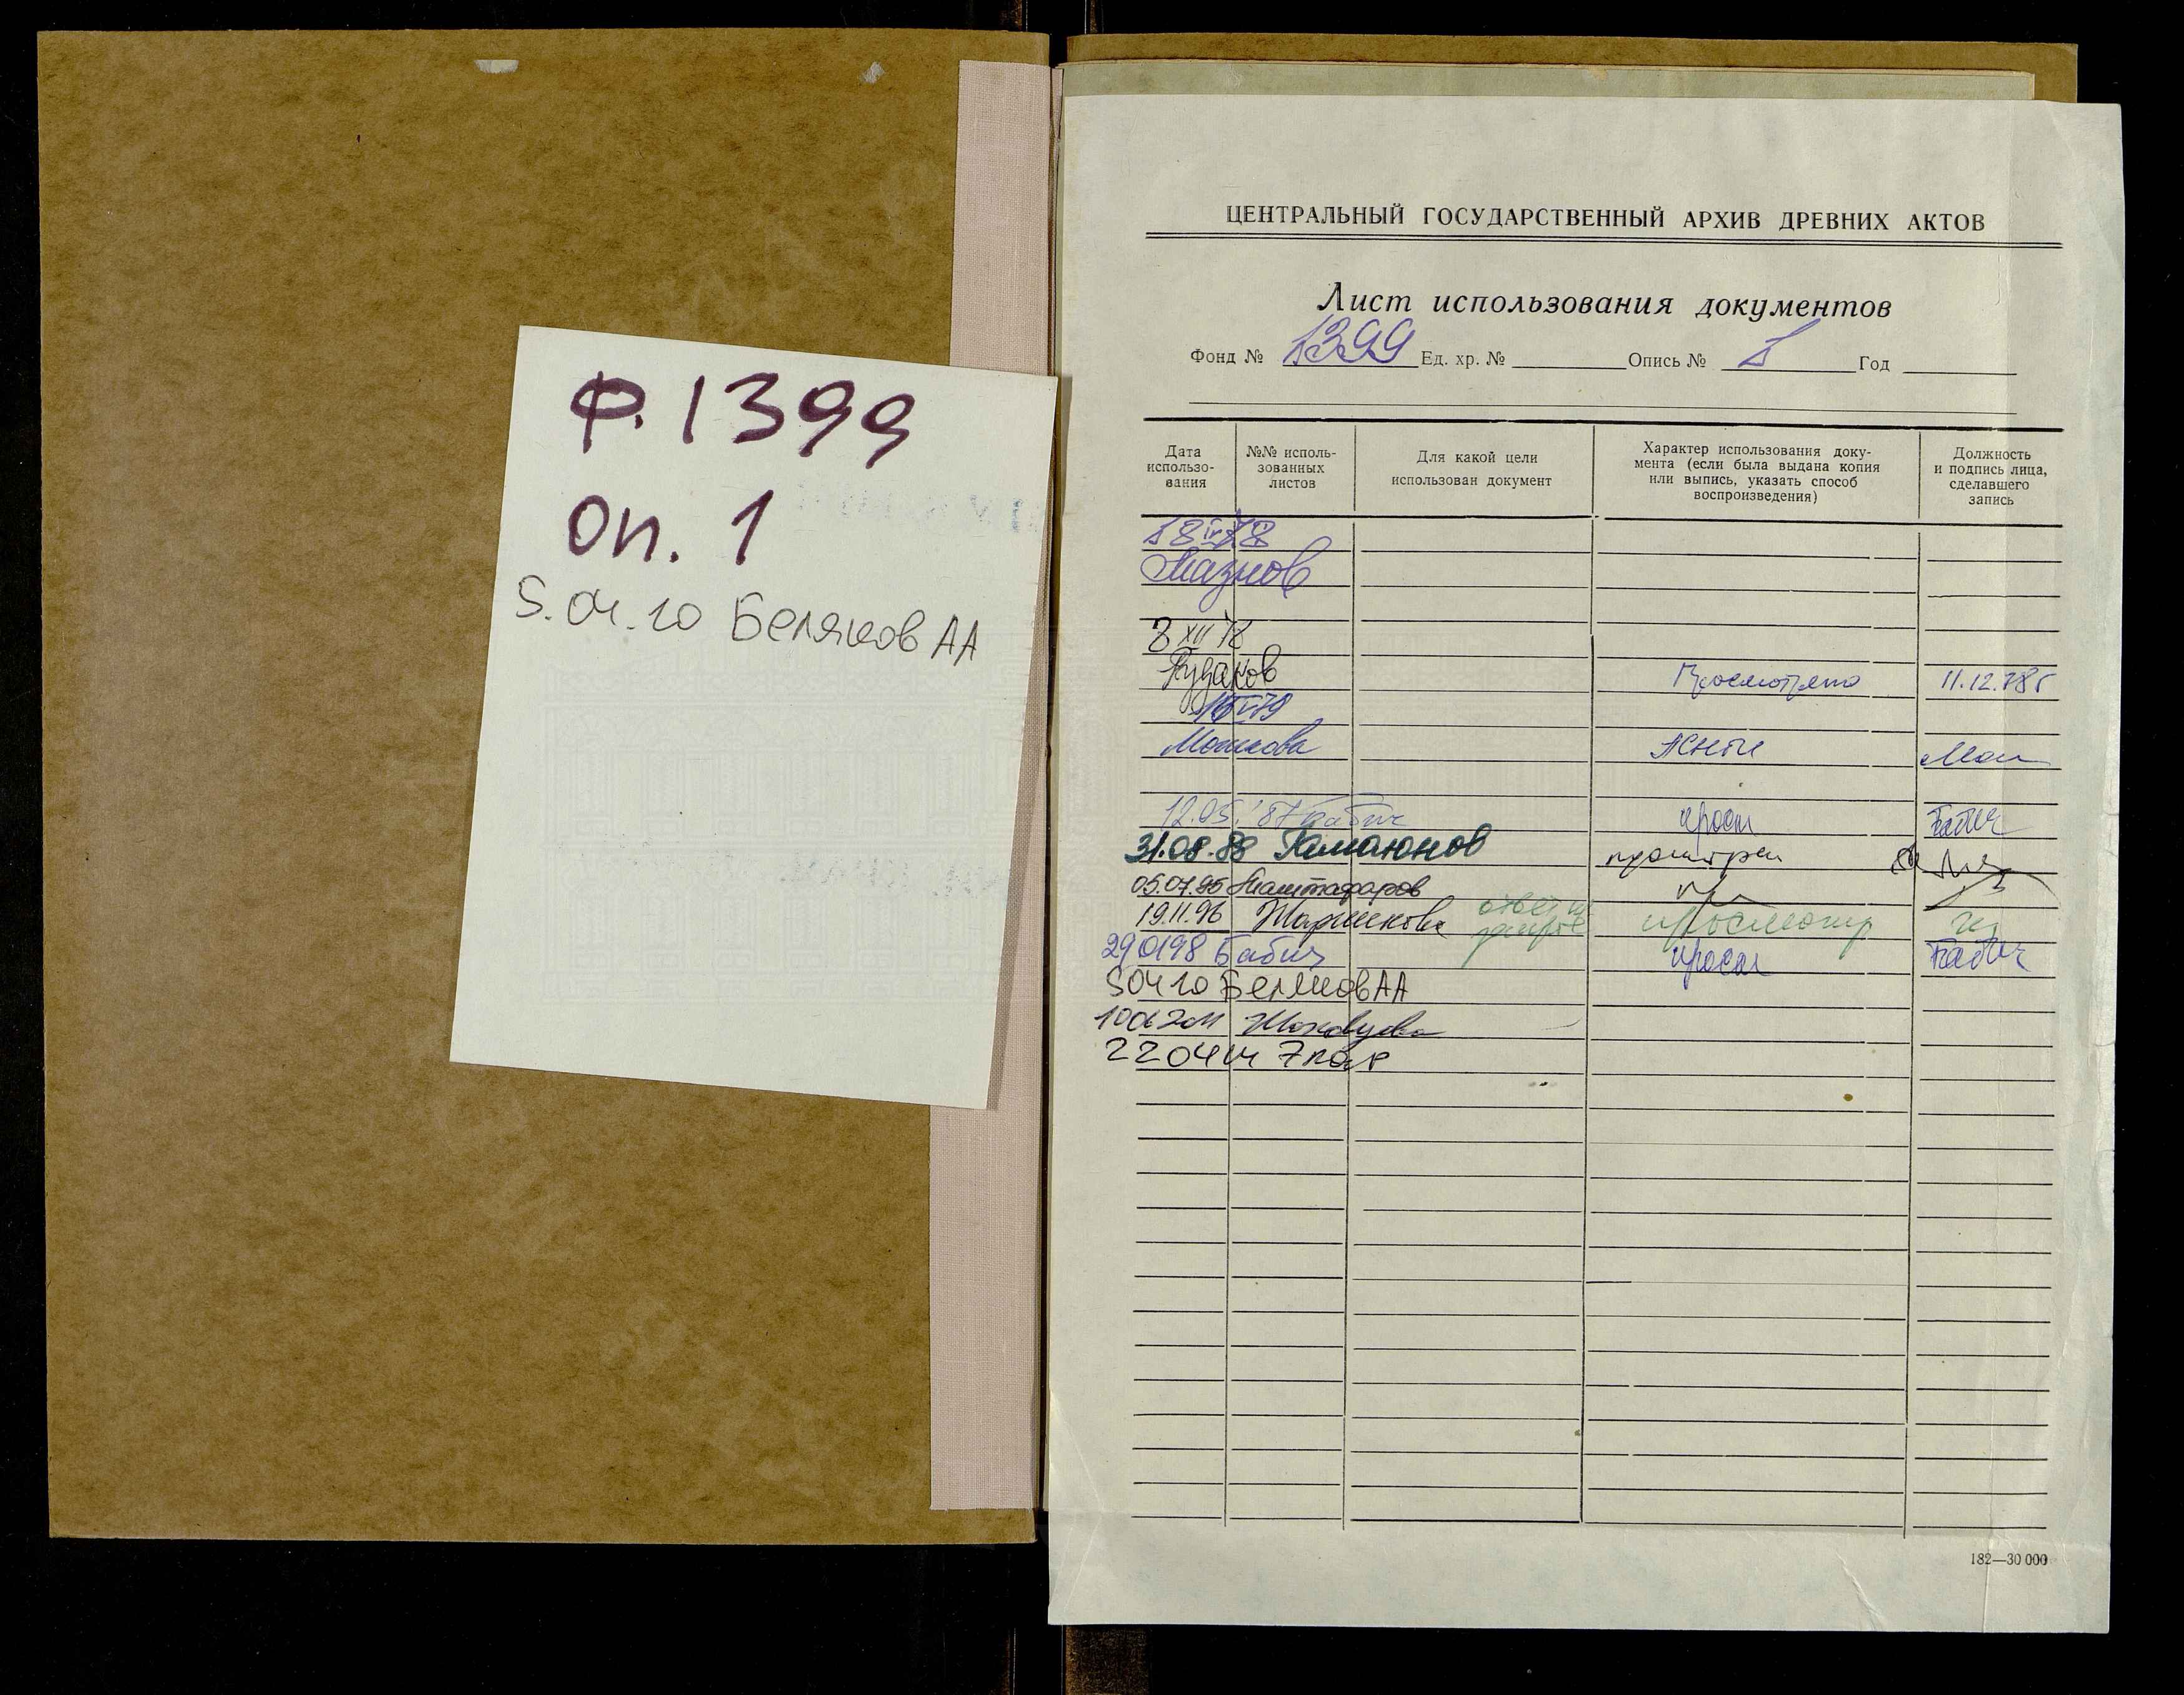 Ф. 1399
оп. 1
5.04.10 Беляков АА
ЦЕНТРАЛЬНЫЙ ГОСУДАРСТВЕННЫЙ АРХИВ ДРЕВНИХ АКТОВ
Лист использования документов
Фонд № 1399 Ед. хр. № Опись № 1 Год
Дата использо-вания
№№ исполь-зованных листов
Для какой цели использован документ
Характер использования доку-мента (если была выдана копия или выпись, указать способ воспроизведения)
Должность и подпись лица, сделавшего запись
18 IV 78
8 XII 78
Просмотрено 11.12.78г
Мошкова
12.05.'87 Бабич просм Бабич
31.08.88 Гамаюнов
05.07.95 Маштафаров
19.11.96 просмотр
290198 Бабич просм Бабич
5 04 10 Беляков АА
10 06 2011
22 04 14
182—30 000